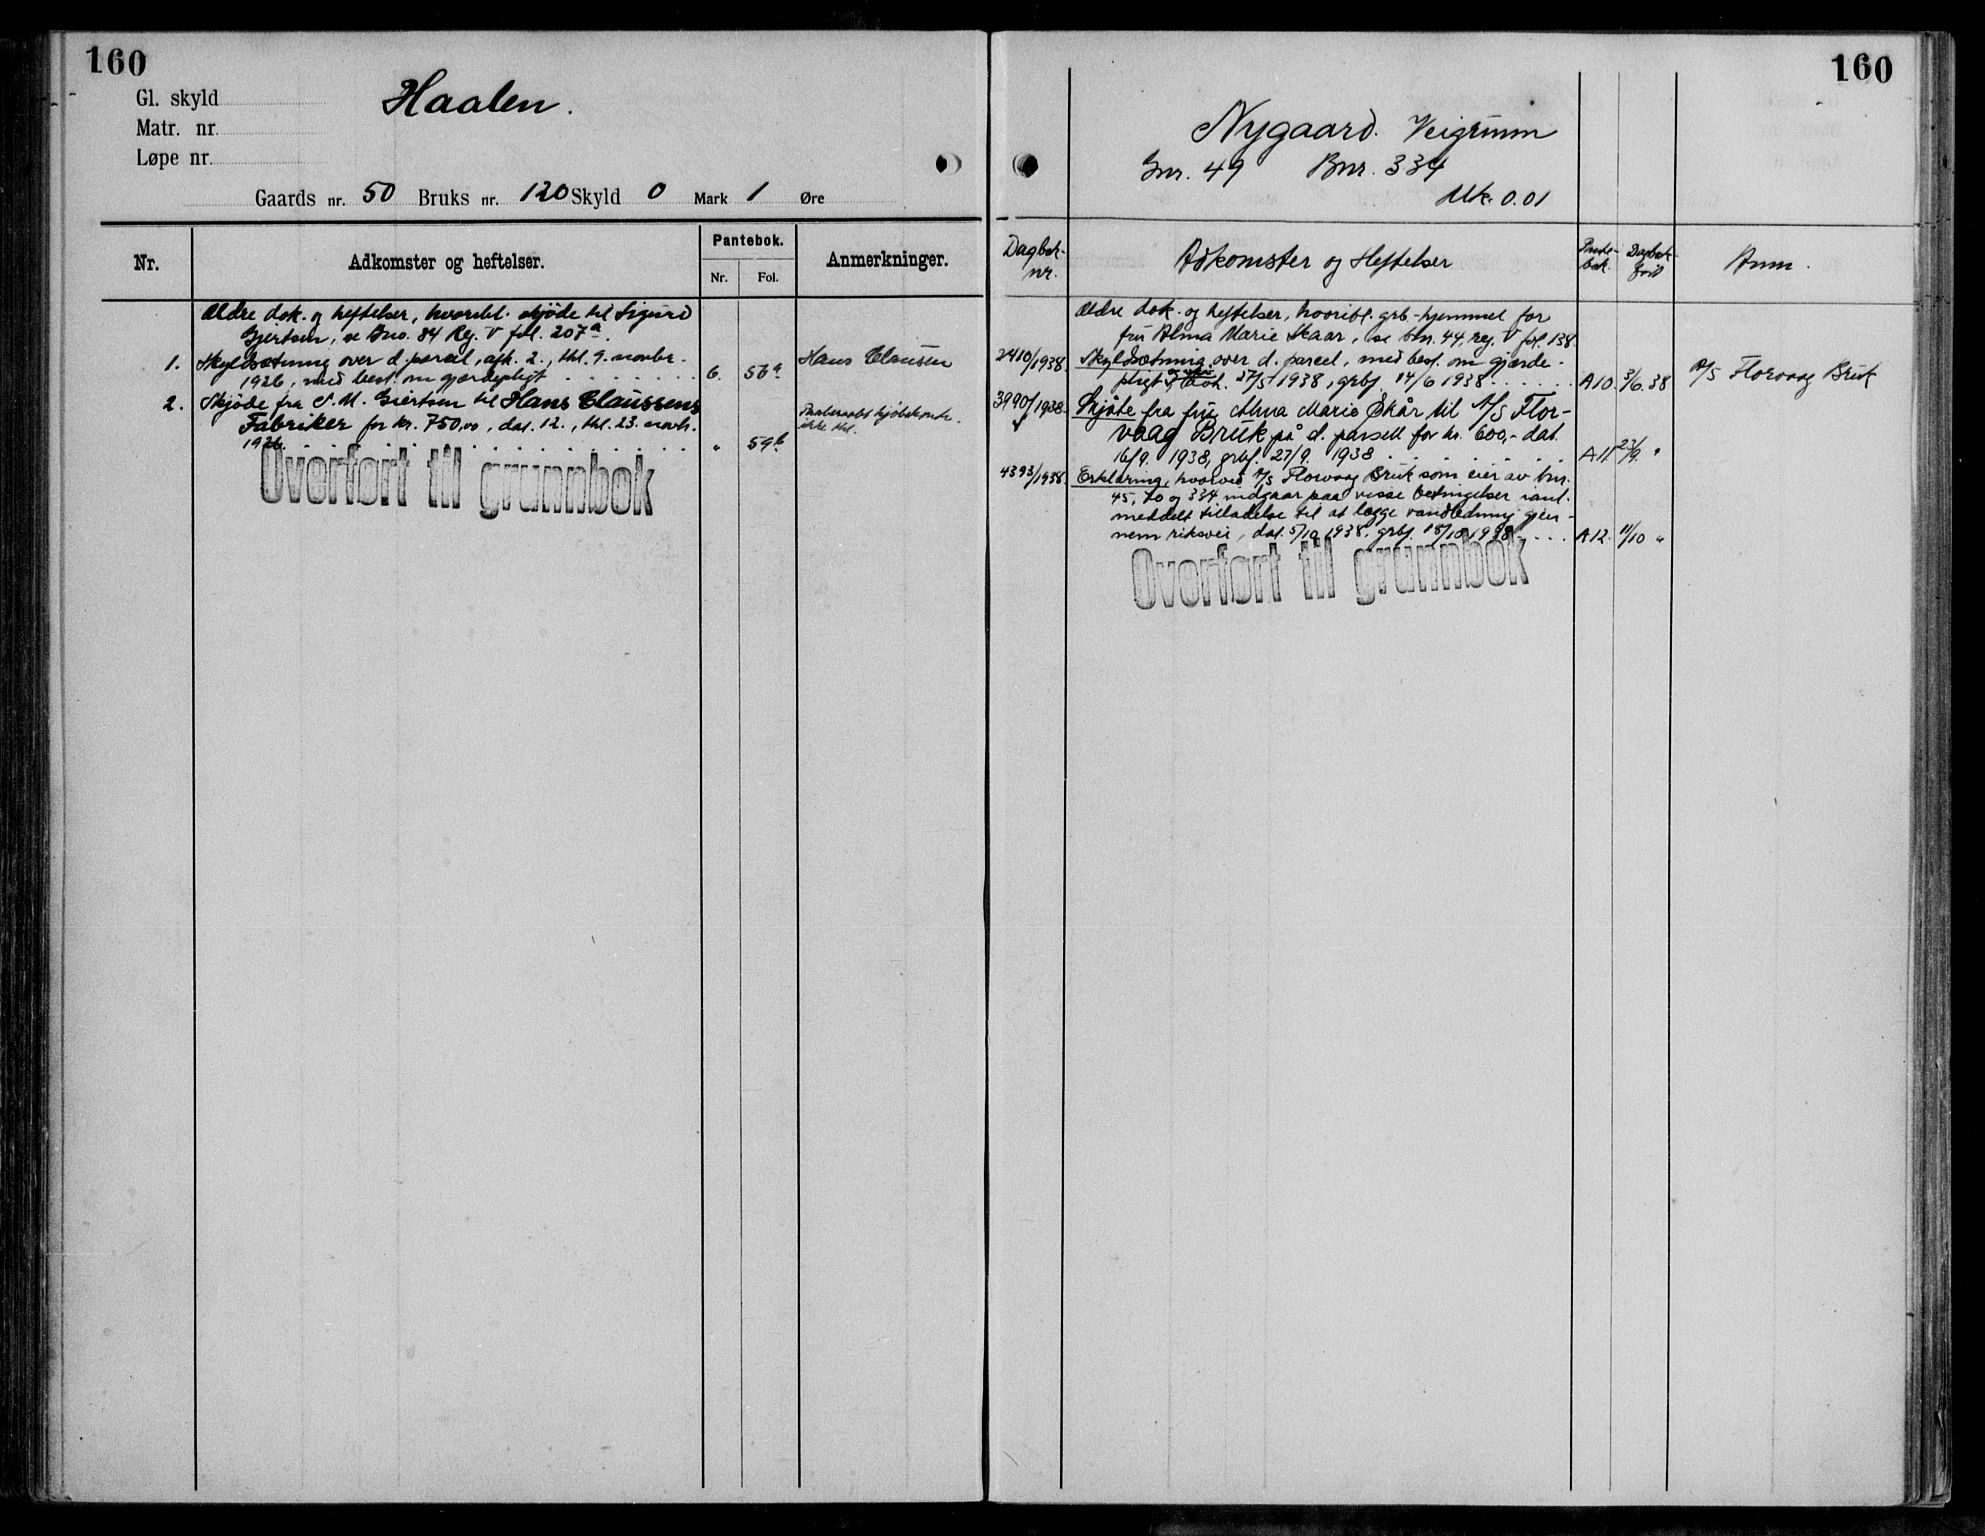 160
Gl. skyld
Matr. nr.
Løpe nr.
Haalen.
Gaards nr. 50 Bruks nr. 120 Skyld 0 Mark 1 Øre
Nr.
Adkomster og heftelser.
Pantebok.
Nr. Fol.
Anmerkninger.
Ældre dok. og heftelser, hvoribl. skjøde til Sigurd
Gjertsen, se Bno. 84 Reg. V fol. 207a.
1. Skyldsætning over d. parcel, afh. 2., thl. 9. novbr. Hans Clausen
1926, med best. om gjærdepligt 6. 56a
2. Skjøde fra S. M. Giertsen til Hans Claussens
Fabriker for kr. 750,00, dat. 12., thl. 23. novb.
ikke thl.
1926. " 59b
Overført til grunnbok
160
Nygaard. Veigrunn
Gnr. 49 Bnr. 334
Mk. 0.01
Dagbok-
nr.
Adkomster og Heftelser
Pante-
bok.
Dagbok-
ført
Anm.
Ældre dok. og heftelser, hvoribl. grb-hjemmel for
fru Alma Marie Skaar, se bnr. 44, reg. V fol. 138
2410/1938. Skyldsætning over d. parcel, med best. om gjærde-
pligt 27/5 1938, grbf. 14/6 1938 A10. 3/6. 38 A/S Florvaag Bruk
3990/1938. Skjøte fra fru Alma Marie Skår til A/S Flor-
vaag Bruk på d. parsell for kr. 600,- dat.
16/9. 1938, grbf. 27/9. 1938 A11. 23/9. "
4393/1938. Erklæring, hvorved A/S Florvaag Bruk som eier av bnr.
45, 20 og 334 indgaar paa visse betingelser
meddelt tilladelse til at lægge vandledning gjen-
nem riksvei, dat. 5/10 1938. grbf. 18/10 1938 A12. 11/10 "
Overført til grunnbok